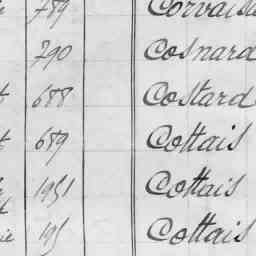 789 Corvaisi
790 Cosnard
688 Costard
689 Cottais
1951 Cottais
195 Cottais